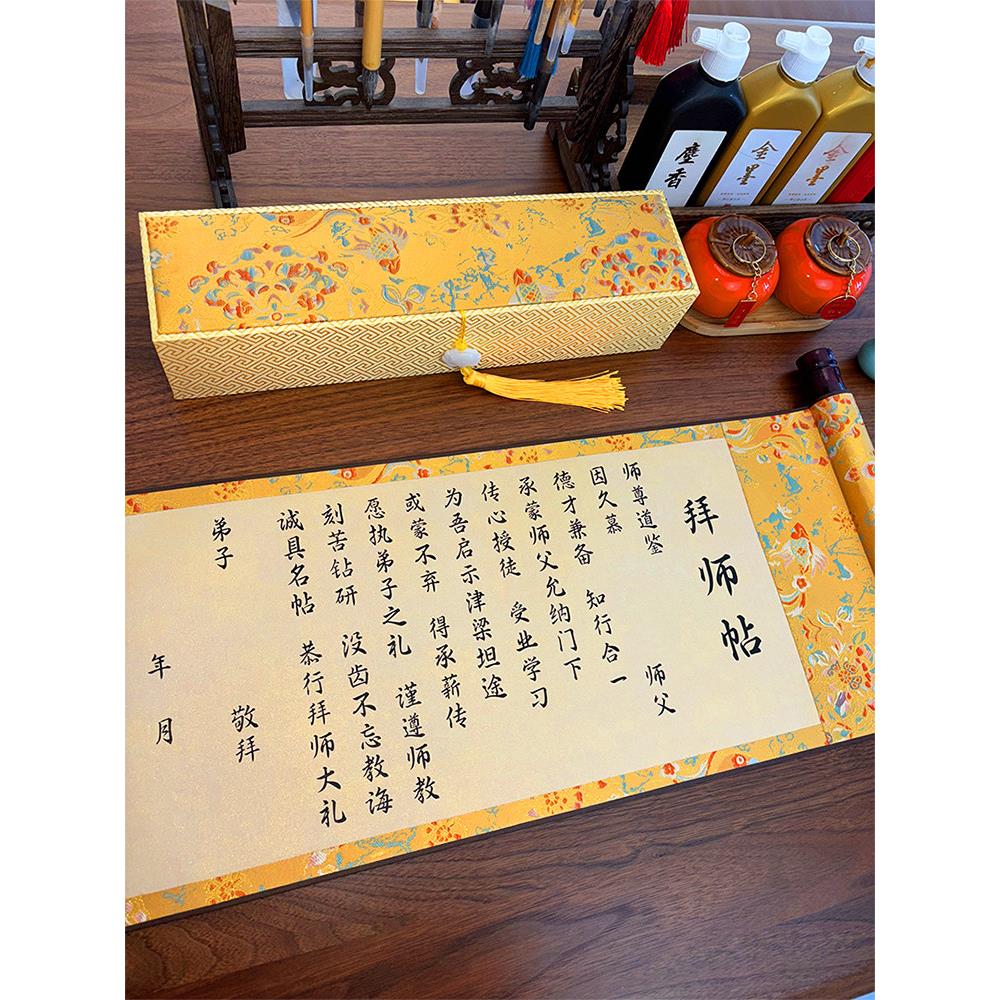 拜师帖
师尊道鉴 师父
因久慕
德才兼备 知行合一
承蒙师父允纳门下
传心授徒 受业学习
为吾启示津梁坦途
或蒙不弃 得承薪传
愿执弟子之礼 谨遵师教
刻苦钻研 没齿不忘教诲
诚具名帖 恭行拜师大礼
弟子 敬拜
年 月
麈香
金墨
金墨